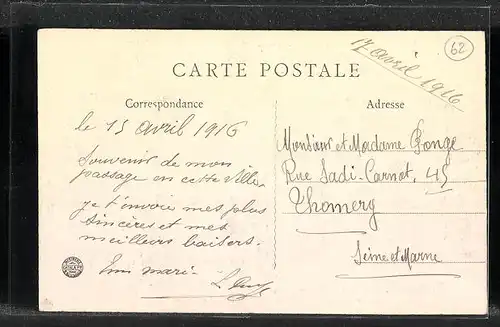 17 avril 1916
62
CARTE POSTALE
Correspondance
Adresse
le 15 avril 1916
Souvenir de mon
passage en cette ville.
je t'envoie mes plus
sincères et mes
meilleurs baisers.
Ton mari
Monsieur et Madame Ponge
Rue Sadi-Carnot, 45
Thomery
Seine et Marne